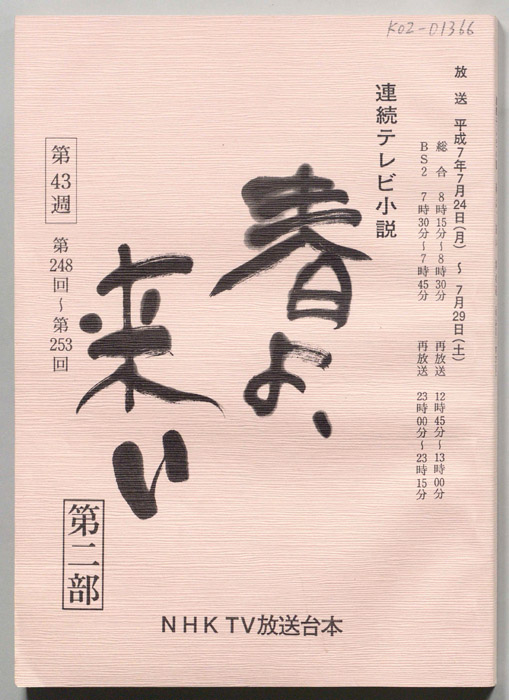 K02-01366
放送 平成7年7月24日(月)〜7月29日(土)
総合 8時15分〜8時30分 再放送 12時45分〜13時00分
BS2 7時30分〜7時45分 再放送 23時00分〜23時15分
連続テレビ小説
春よ、
来い
第43週
第248回〜第253回
第二部
NHK TV放送台本